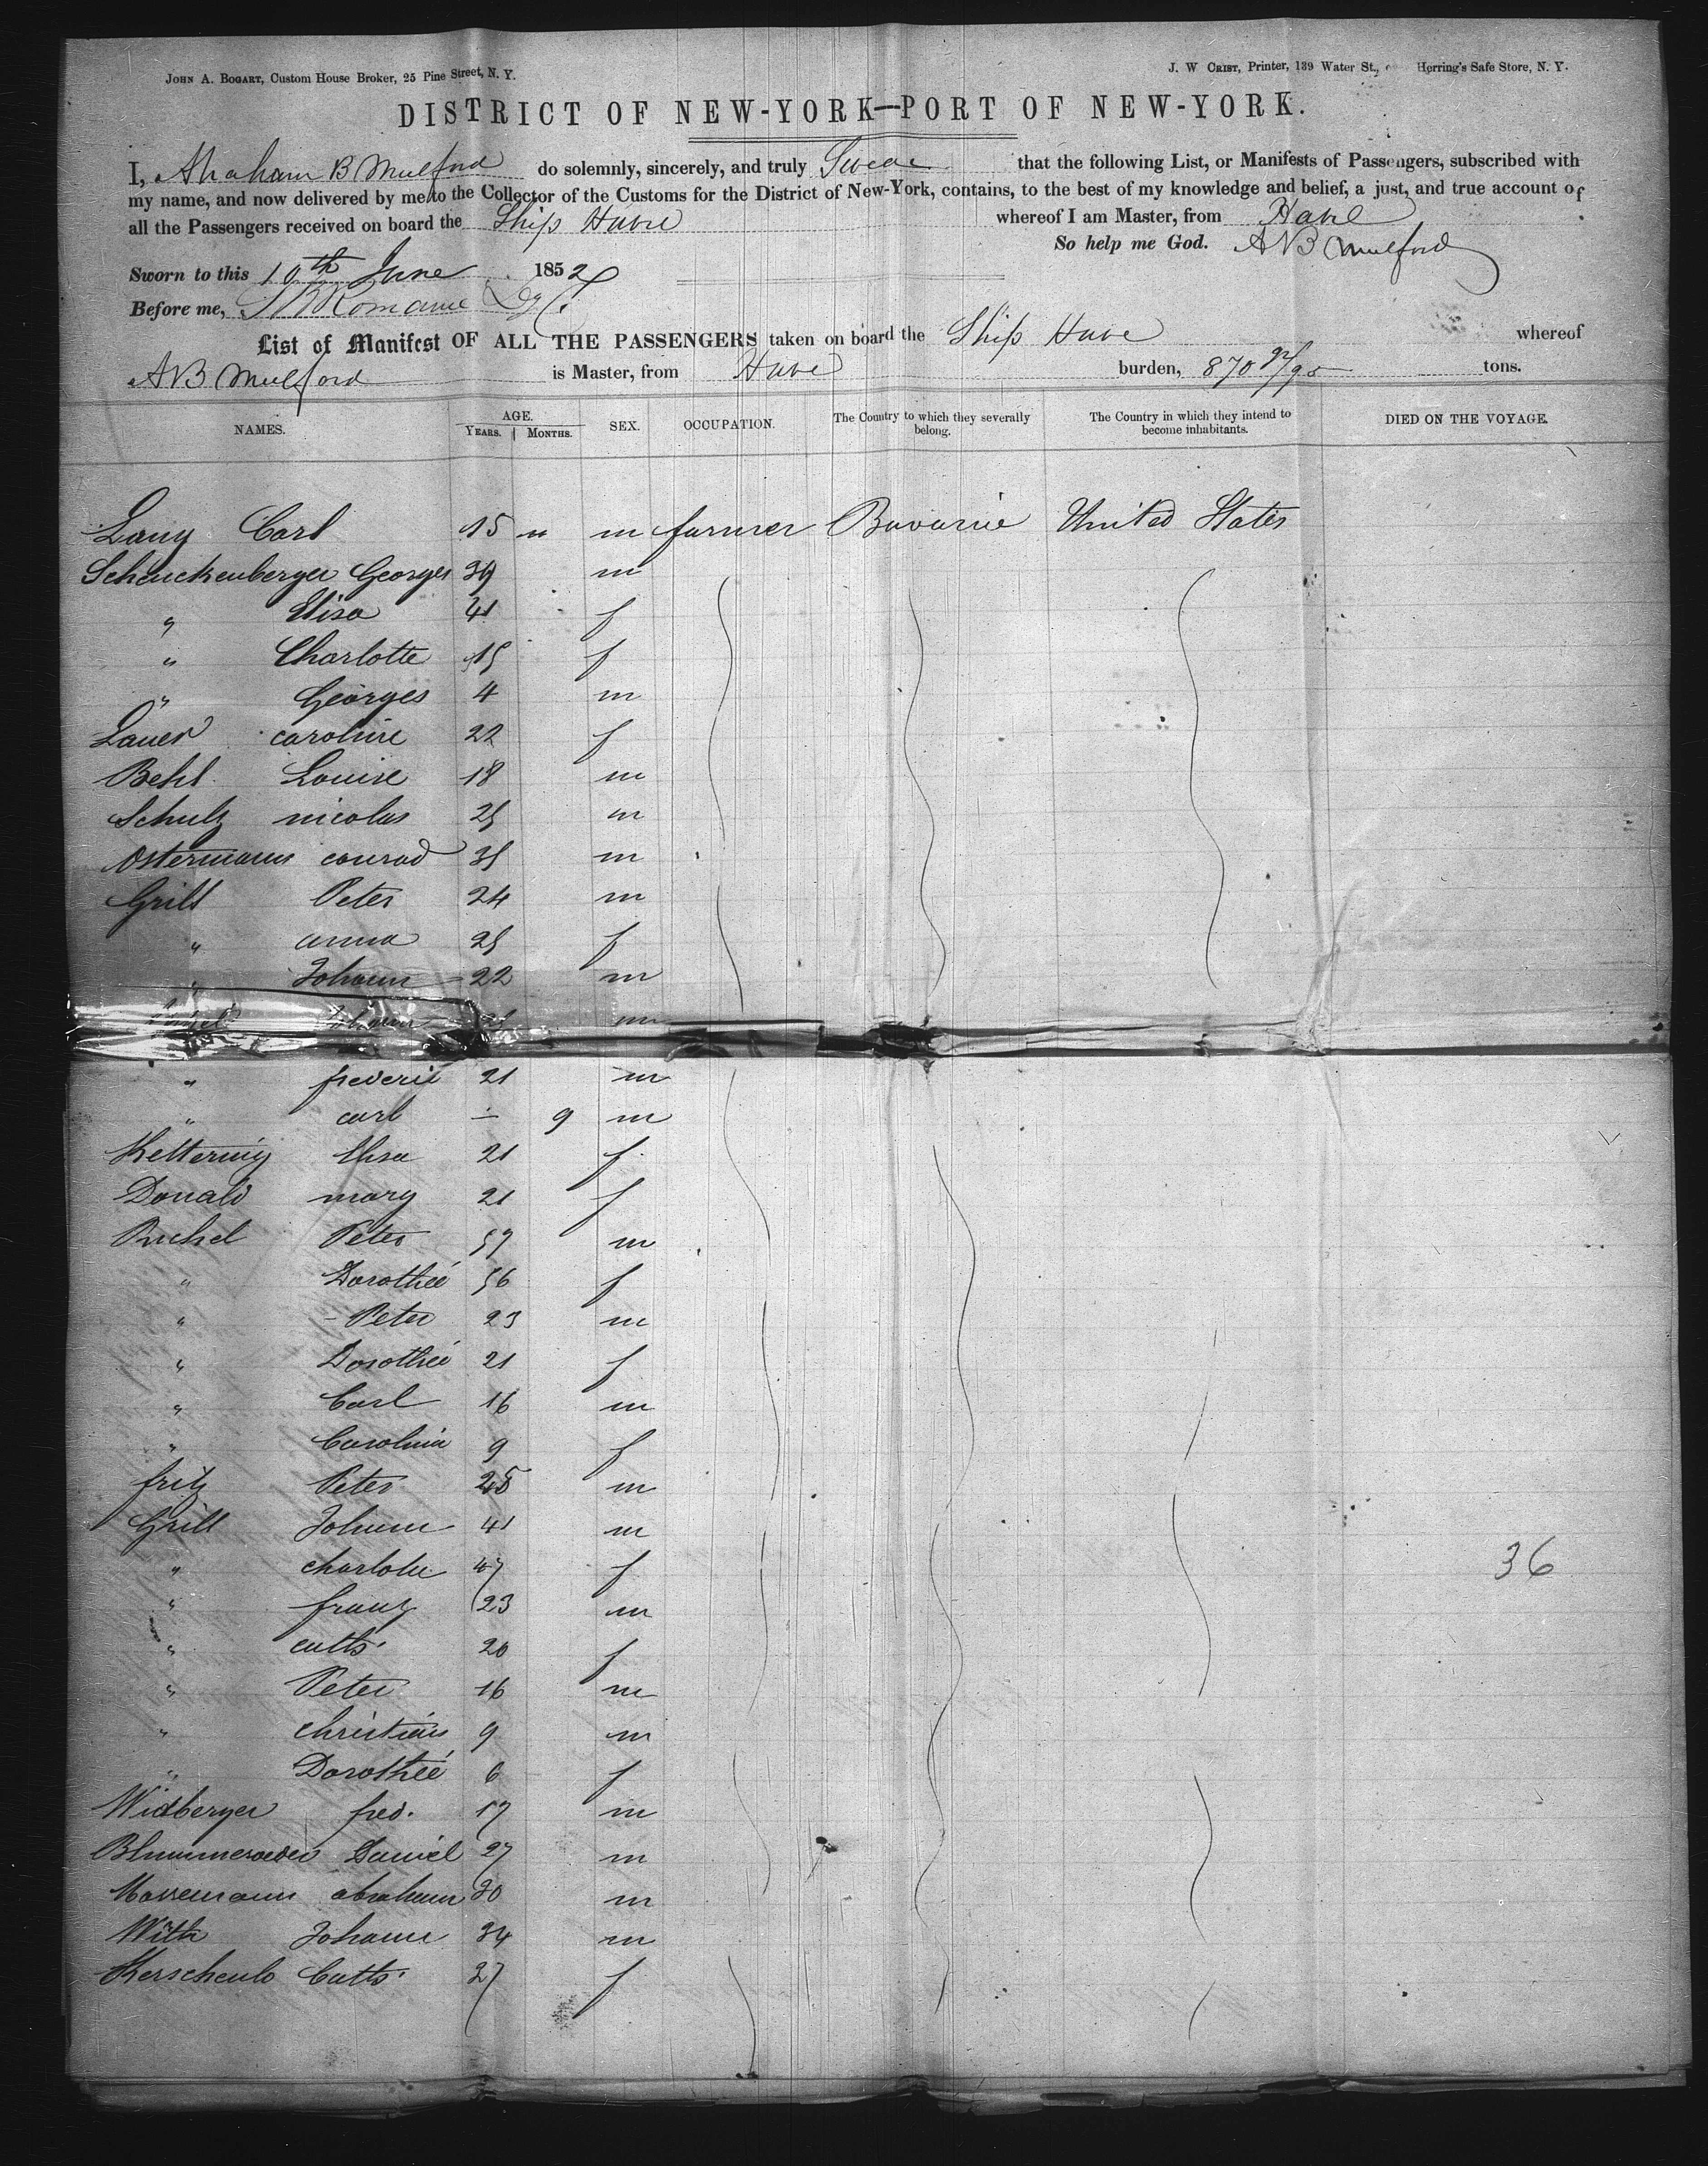 JOHN A. BOGART, Custom House Broker, 25 Pine Street, N. Y.
J. W CRIST, Printer, 139 Water St., Herring's Safe Store, N. Y.
DISTRICT OF NEW-YORK—PORT OF NEW-YORK.
I, Abraham B Mulford do solemnly, sincerely, and truly Swear that the following List, or Manifests of Passengers, subscribed with
my name, and now delivered by me to the Collector of the Customs for the District of New-York, contains, to the best of my knowledge and belief, a just, and true account of
all the Passengers received on board the Ship Havre whereof I am Master, from Havre
So help me God. AB Mulford
Sworn to this 10th June 1852
Before me,
List of Manifest OF ALL THE PASSENGERS taken on board the Ship Havre whereof
AB Mulford is Master, from Havre burden, 870 92/95 tons.
NAMES. AGE. YEARS. MONTHS. SEX. OCCUPATION. The Country to which they severally belong. The Country in which they intend to become inhabitants. DIED ON THE VOYAGE.
Lang Carl 15 " m farmer Bavaria United States
Schenckenberger Georges 39 m
" Elisa 41 f
" Charlotte 15 f
" Georges 4 m
Lauer caroline 22 f
Behl Louise 18 m
Schulz nicolas 25 m
Ostermann conrad 35 m
Grill Peter 24 m
" anna 25 f
" Johann 22 m
m
" frederic 21 m
" carl - 9 m
Kettering Elisa 21 f
Donald mary 21 f
Puchel Peter 57 m
" Dorothée 56 f
" Peter 23 m
" Dorothée 21 f
" Carl 16 m
" Carolina 9 f
fritz Peter m
Grill Johann 41 m
" charlotte 47 f
" franz 23 m
" cath. 20 f
" Peter 16 m
" christian 9 m
" Dorothée 6 f
Widberger fred. 17 m
Daniel 27 m
abraham 30 m
With Johann 34 m
Cath. 27 f
36